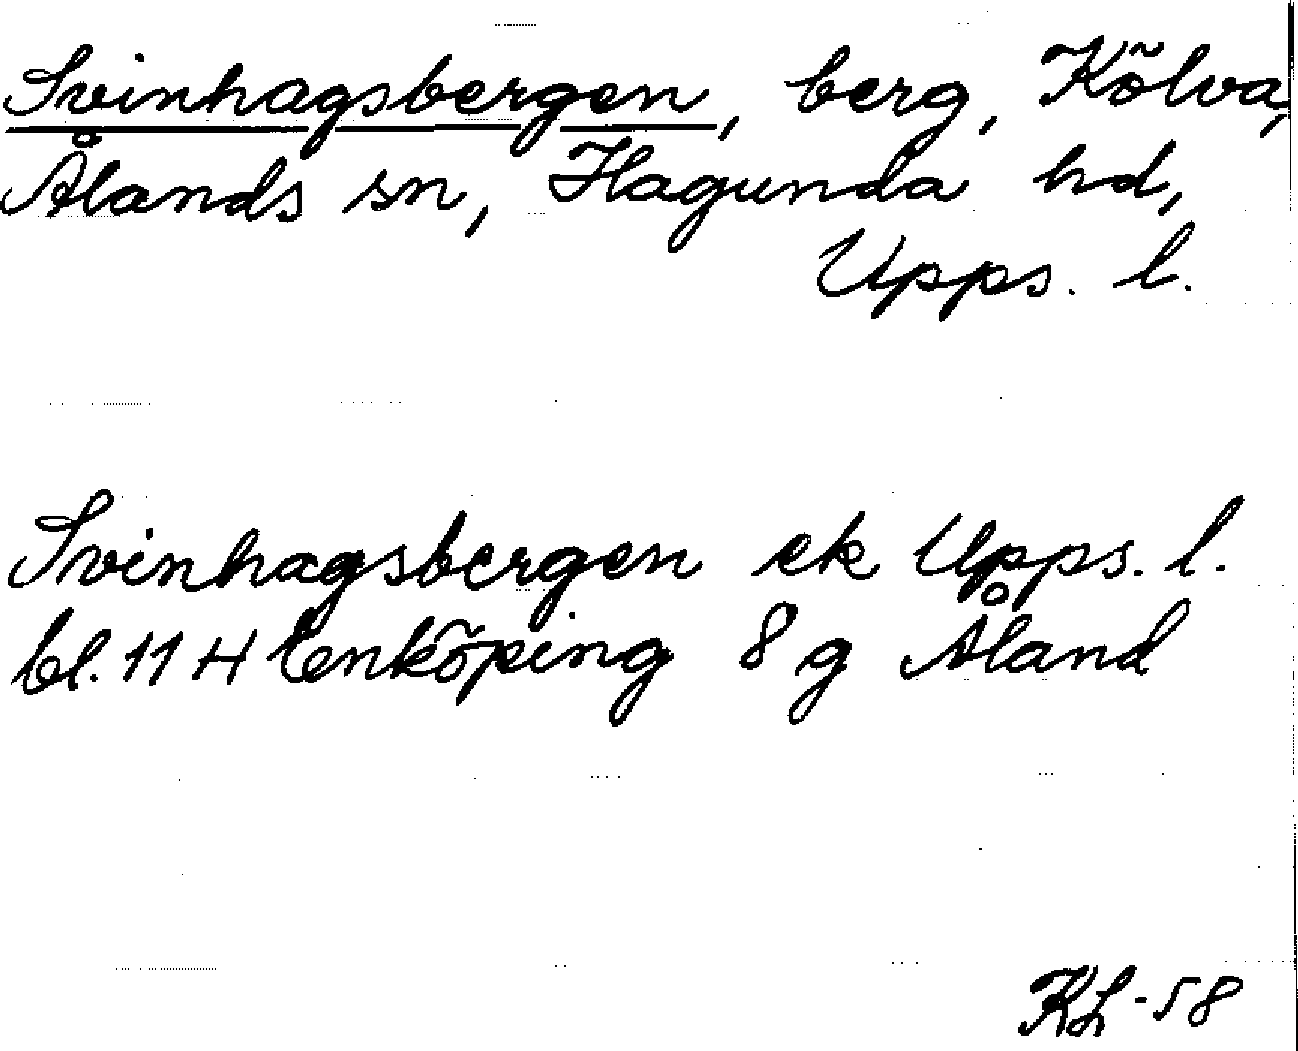 Svinhagsbergen, berg, Kölva,
Ålands sn, Hagunda hd,
Upps. l.
Svinhagsbergen ek Upps. l.
bl. 11 H Enköping 8 g Åland
KL-58